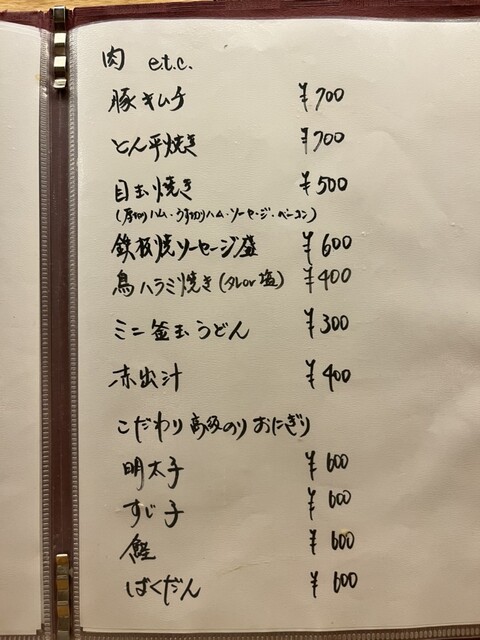 肉 e.t.c.
豚キムチ ¥700
とん平焼き ¥700
目玉焼き ¥500
(厚切りハム・うす切りハム・ソーセージ・ベーコン)
鉄板焼ソーセージ盛 ¥600
鳥ハラミ焼き(タレor塩) ¥400
ミニ釜玉うどん ¥300
赤出汁 ¥400
こだわり高級のりおにぎり
明太子 ¥600
すじ子 ¥600
鮭 ¥600
ばくだん ¥600